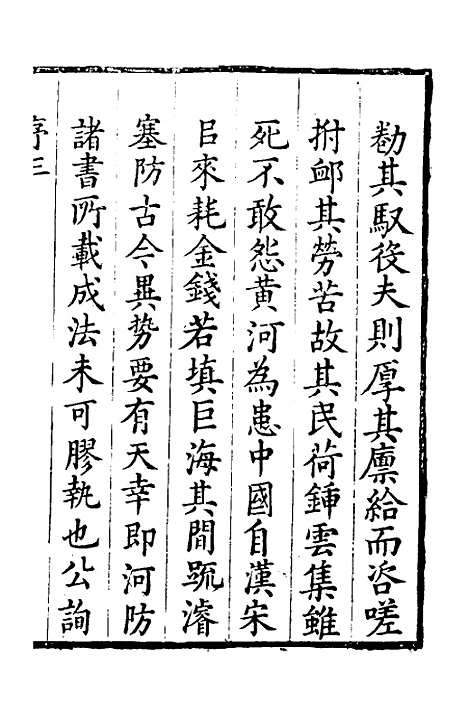 勸其馭役夫則厚其廪給而咨嗟
拊邮其勞苦故其民荷鍤雲集雖
死不敢怨黄河為患中國自漢宋
㠯來耗金錢若填巨海其間䟽濬
塞防古今異势要有天幸即河防
諸書所載成法未可膠執也公詢
序三